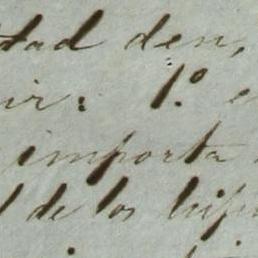 tad den,
ir: 1.º e
importa
l de los hip